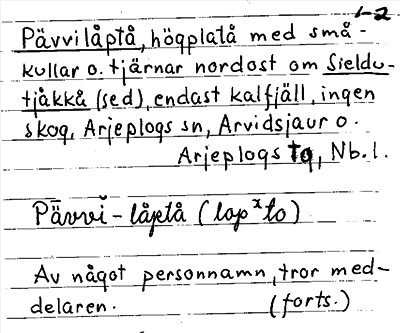 1-2
Pävvilåptå, högplatå med små-
kullar o. tjärnar nordost om Sieldu-
tjåkkå (sed), endast kalfjäll, ingen
skog, Arjeplogs sn, Arvidsjaur o.
Arjeplogs tg, Nb. l.
Pävvĭ-låptå (lopˣto)
Av något personnamn, tror med-
delaren. (forts.)